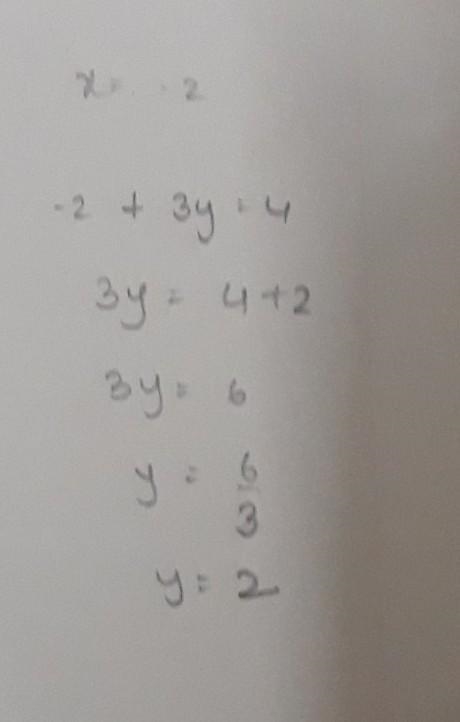 x = -2
-2 + 3y = 4
3y = 4+2
3y = 6
y = 6/3
y = 2